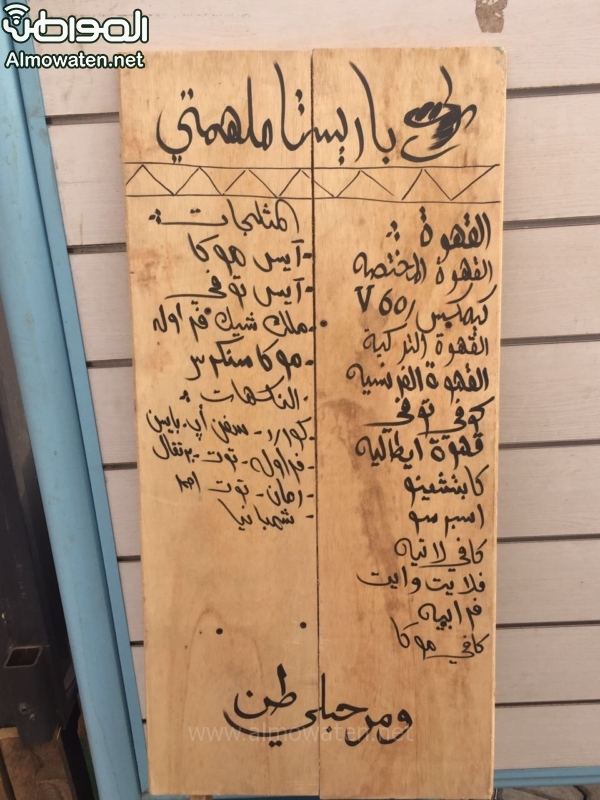 المواطن
Almowaten.net
باريستا ملهمتي
القهوة :
القهوة المختصه
كيمكس / V60
القهوة التركية
القهوة الفرنسيه
كوفي توفي
قهوة ايطاليه
كابتشينو
اسبرسو
كافي لاتيه
فلايت وايت
فرابيه
كافي موكا
المثلجات :
- آيس موكا
- آيس توفي
- ملك شيك فراوله
- موكا سنكرس
- النكهات :
- كودرد - سفن أب - باين
- فراوله - توت - برتقال
- رمان - توت احمر
- شمبانيا
ومرحبلي طن
www.almowaten.net